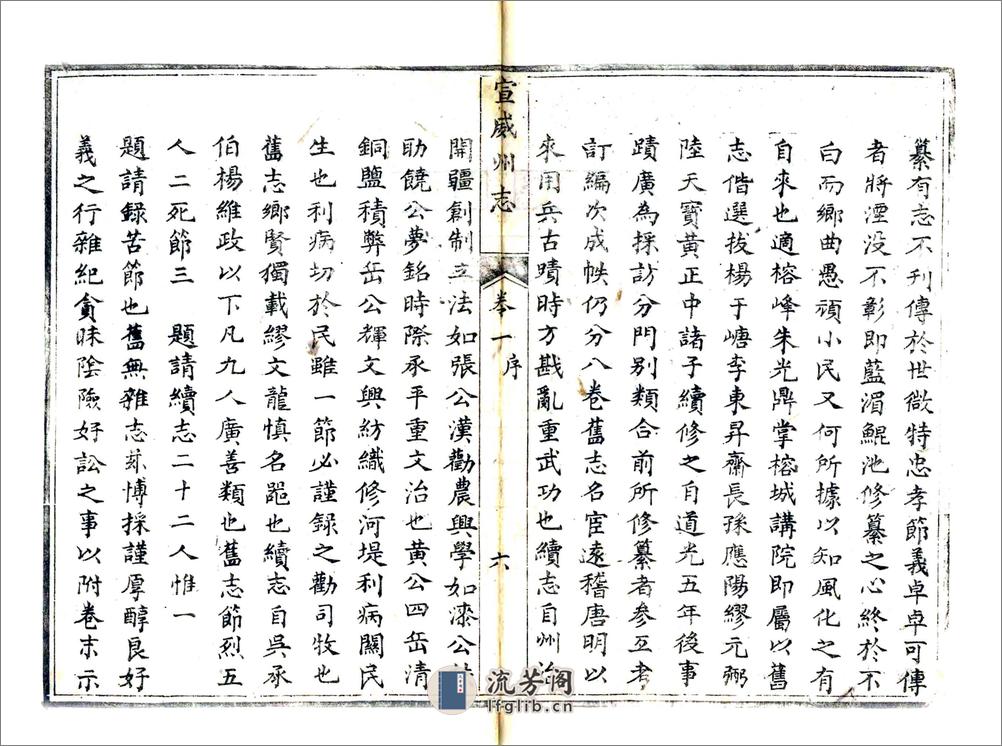 纂有志不刊傳於世微特忠孝節義卓卓可傳
者將湮没不彰即藍湄鯤池修纂之心終於不
白而鄉曲愚頑小民又何所據以知風化之有
自來也適榕峰朱光鼎掌榕城講院即屬以舊
志偕選拔楊于嵣李東昇齋長孫應陽繆元弼
陸天寶黄正中諸子續修之自道光五年後事
蹟廣為採訪分門别類合前所修纂者參互考
訂編次成帙仍分八卷舊志名宦遠稽唐明以
來用兵古蹟時方戡亂重武功也續志自州治
宣威州志
卷一 序
六
開疆創制立法如張公漢勸農興學如漆公
助饒公夢銘時際承平重文治也黄公四岳清
銅鹽積弊岳公輝文興紡織修河堤利病關民
生也利病切於民雖一節必謹録之勸司牧也
舊志鄉賢獨載繆文龍慎名器也續志自吳承
伯楊維政以下凡九人廣善類也舊志節烈五
人二死節三 題請續志二十二人惟一
題請録苦節也舊無雜志兹博採謹厚醇良好
義之行雜紀貪昧陰險好訟之事以附卷末示
流芳阁
lfglib.cn